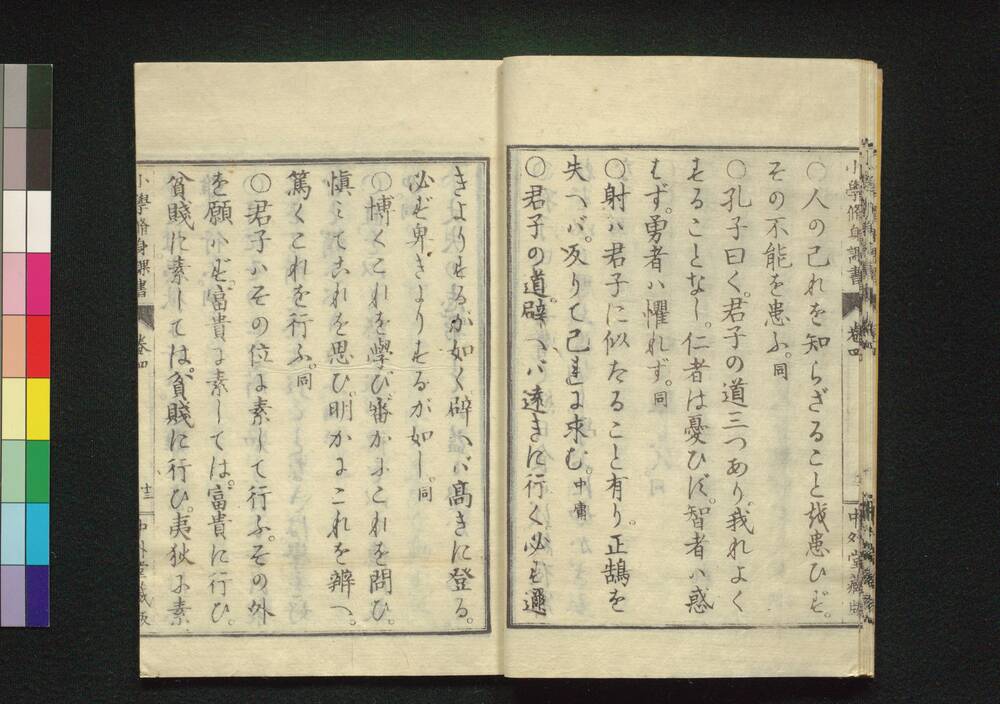 小學修身課書 卷四
十二 中外堂藏版
○人の己れを知らざることを患ひず。
その不能を患ふ。同
○孔子曰く。君子の道三つあり我れよく
することなし。仁者は憂ひず。智者ハ惑
はず。勇者ハ懼れず。同
○射ハ君子に似たること有り。正鵠を
失へバ。反りて己れに求む。中庸
○君子の道。辟へバ遠きに行く必ず邇
きよりするが如く辟へバ高きに登る。
必ず卑きよりするが如し。同
○博くこれを學び審かにこれを問ひ。
愼ミてこれを思ひ。明かにこれを辨へ。
篤くこれを行ふ。同
○君子ハその位に素して行ふ。その外
を願ハず。富貴に素しては。富貴に行ひ。
貧賤に素しては。貧賤に行ひ。夷狄に素
小學修身課書 卷四
十三 中外堂藏版